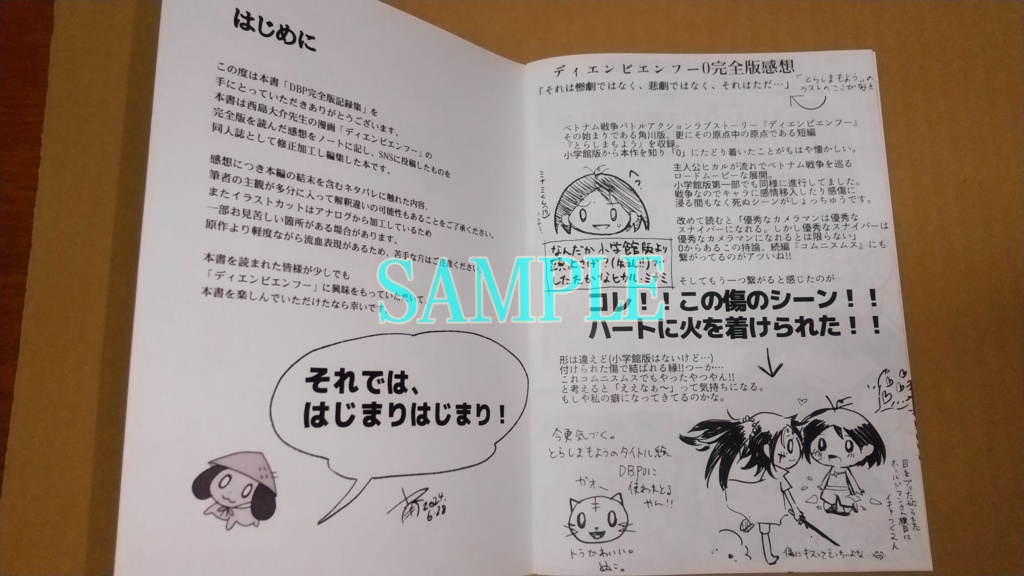 はじめに
この度は本書「DBP完全版記録集」を
手にとっていただきありがとうございます。
本書は西島大介先生の漫画「ディエンビエンフー」の
完全版を読んだ感想をノートに記し、SNSに投稿したものを
同人誌として修正加工し編集した本です。
感想につき本編の結末を含むネタバレに触れた内容、
筆者の主観が多分に入って解釈違いの可能性もあることをご了承ください。
またイラストカットはアナログから加工しているため
一部お見苦しい箇所がある場合があります。
原作より軽度ながら流血表現があるため、苦手な方はご注意ください
本書を読まれた皆様が少しでも
「ディエンビエンフー」に興味をもっていただいて
本書を楽しんでいただけたなら幸いです
それでは、
はじまりはじまり!
2024.
6.28
ディエンビエンフー0完全版感想
「それは惨劇ではなく、悲劇ではなく、それはただ…」
「とらしまもよう」の
ラストのここが好き
ベトナム戦争バトルアクションラブストーリー『ディエンビエンフー』
その始まりである角川版、更にその原点中の原点である短編
『とらしまもよう』を収録。
小学館版から本作を知り「0」にたどり着いたことがもはや懐かしい。
主人公ヒカルが流れでベトナム戦争を巡る
ロードムービーな展開。
小学館版第一部でも同様に進行してました。
戦争なのでキャラに感情移入したり感傷に
浸る間もなく死ぬシーンがしょっちゅうです。
なんだか小学館版より
頭よさげ?
したたかなヒカル・ミナミ
改めて読むと「優秀なカメラマンは優秀な
スナイパーになれる。しかし優秀なスナイパーは
優秀なカメラマンになれるとは限らない」
0からあるこの持論、続編『コムニスムス』にも
繋がってるのがアツいね!!
SAMPLE
そしてもう一つ繋がると感じたのが
コレ!!この傷のシーン!!
ハートに火を着けられた!!
形は違えど(小学館版はないけど…)
付けられた傷で結ばれる縁!!つーか…
これコムニスムスでもやったやつやん!!
と考えると「ええなぁ〜」って気持ちになる。
もしや私の癖になってきてるのかな。
今更気づく。
とらしまもようのタイトル絵
DBP0に
使われとる
やん!!
ガオー
トラかわいい。
ぬこ。
イチャつく2人
傷にキスってえっちいよな…